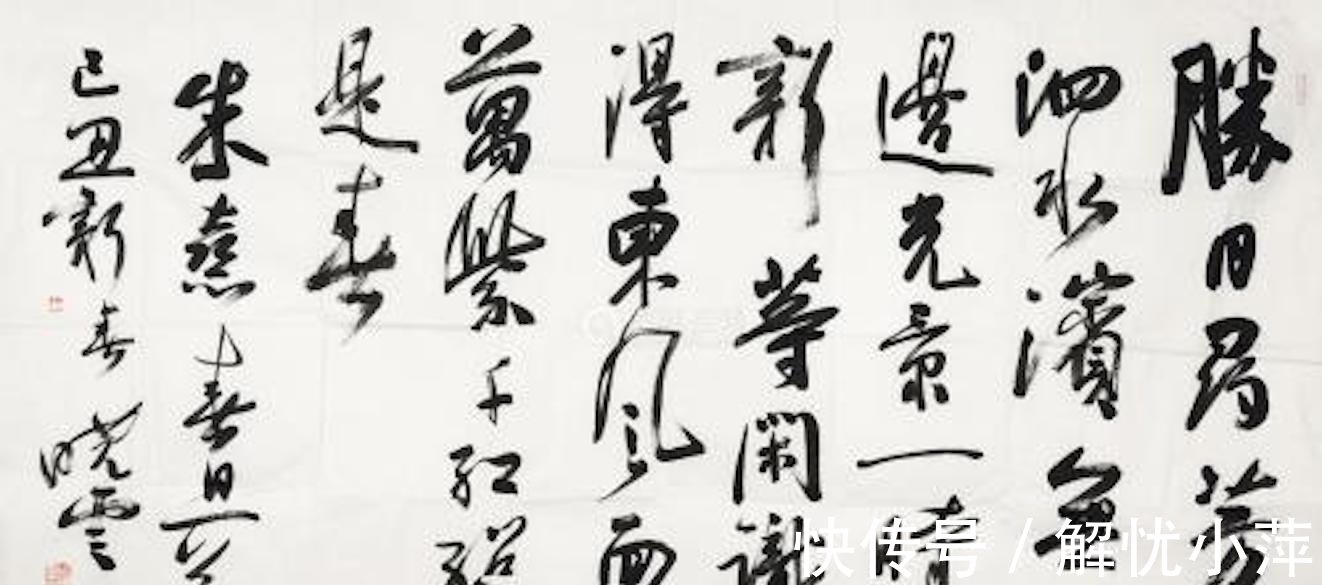 勝日尋芳
泗水濱無
邊光景一時
新等閑識
得東風面
萬紫千紅總
是春
朱熹春日
己丑新春曉雲
快传号 / 解忧小萍